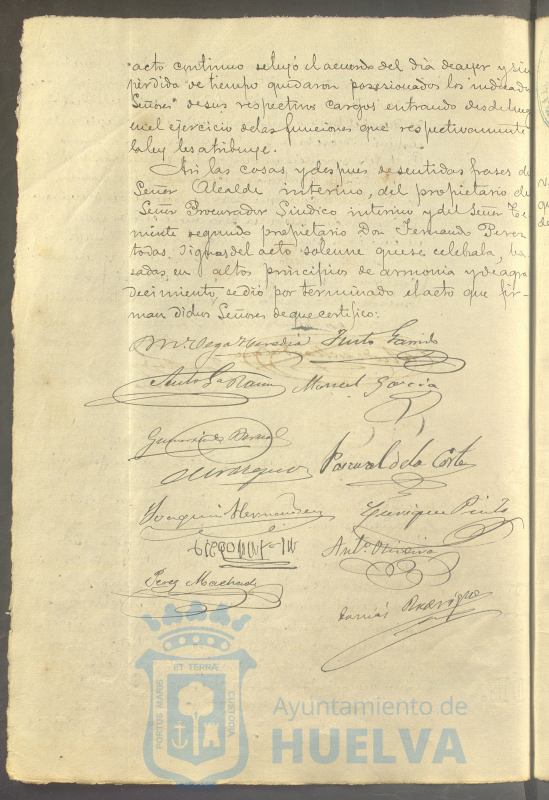 acto continuo se leyó el acuerdo del día de ayer y sin
pérdida de tiempo quedaron posesionados los indicados
Señores de sus respectivos cargos entrando desde luego
en el ejercicio de las funciones que respectivamente
la ley les atribuye.
Asi las cosas, y despues de sentidas frases del
Señor Alcalde interino, del propietario del
Señor Procurador Síndico interino y del Señor Te-
niente segundo propietario Don Fernando Perez
todas, dignas del acto solemne que se celebraba, ba-
sadas en altos principios de armonía y de agra-
decimiento, se dió por terminado el acto que fir-
man dichos Señores de que certifico:
Justo Garrido
Manuel García
Pascual de la Corte
Joaquin Hernandez Enrique Pinto
Anto. Oliveira
Perez Machado
Rodriguez
PORTUS MARIS ET TERRAE CUSTODIA
Ayuntamiento de
HUELVA